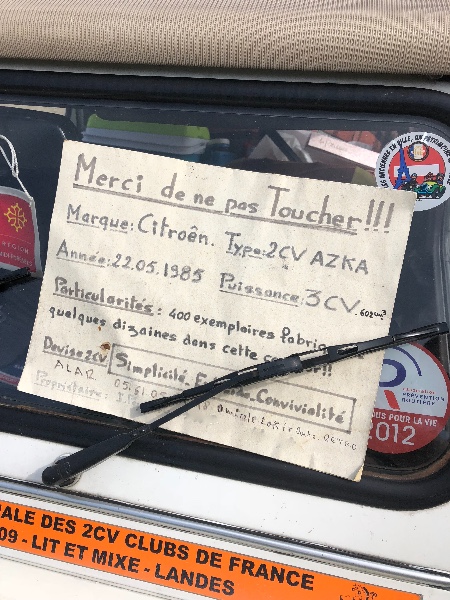 Merci de ne pas Toucher!!!
Marque: Citroën. Type: 2CV AZKA
Année: 22.05.1985 Puissance: 3CV. 602cm³
Particularités: 400 exemplaires fabriq
quelques dizaines dans cette
Devise 2CV Simplicité Convivialité
ALAR
Propriétaire:
RÉGION
PRÉVENTION
ROUTIÈRE
OUS POUR LA VIE
2012
ALE DES 2CV CLUBS DE FRANCE
09 - LIT ET MIXE - LANDES